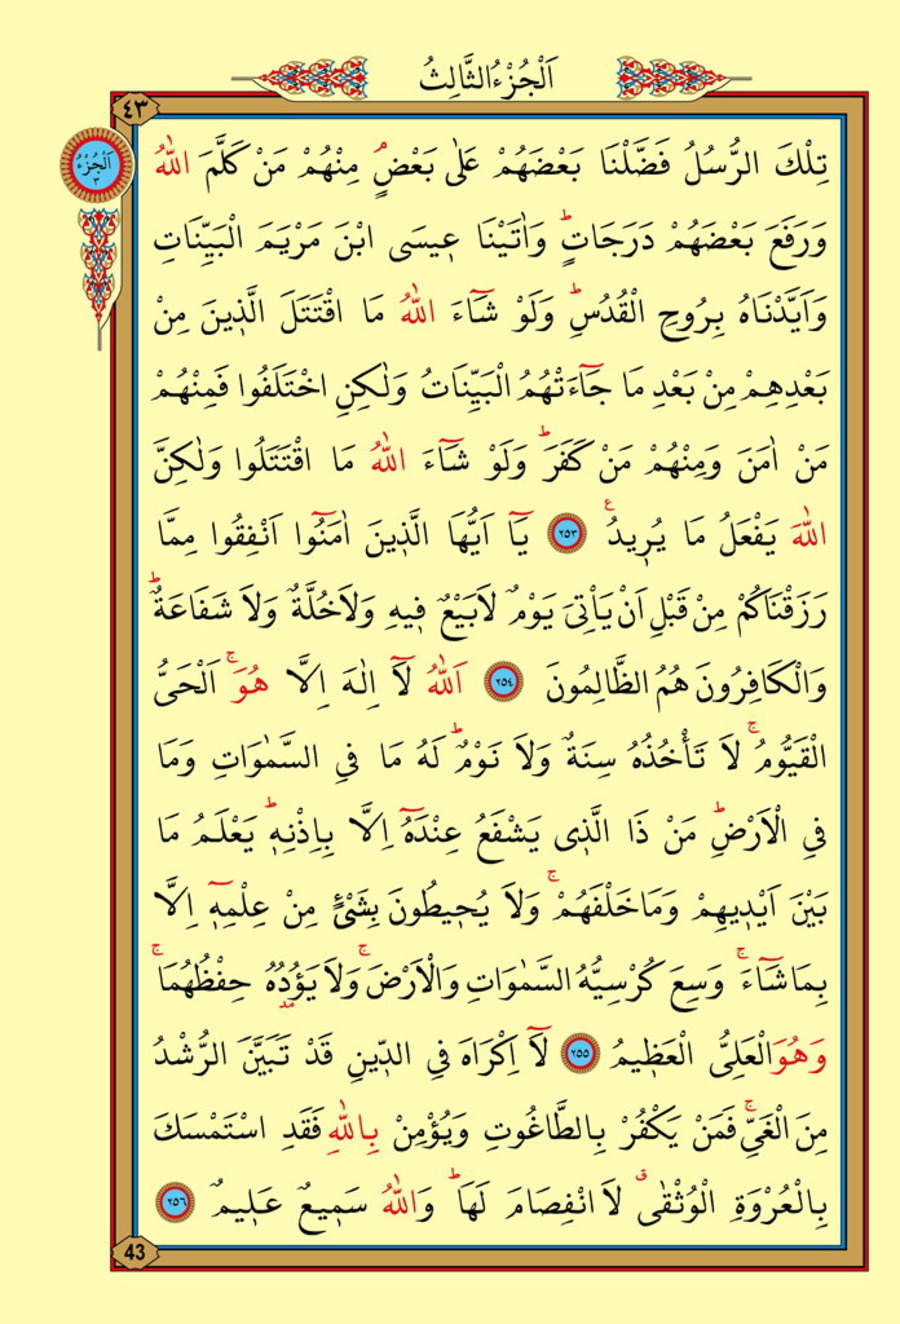 اَلْجُزْءُ الثَّالِثُ
٤٣
اَلْجُزْءُ
٣
تِلْكَ الرُّسُلُ فَضَّلْنَا بَعْضَهُمْ عَلٰى بَعْضٍۢ مِنْهُمْ مَنْ كَلَّمَ اللّٰهُ
وَرَفَعَ بَعْضَهُمْ دَرَجَاتٍۜ وَاٰتَيْنَا ع۪يسَى ابْنَ مَرْيَمَ الْبَيِّنَاتِ
وَاَيَّدْنَاهُ بِرُوحِ الْقُدُسِۜ وَلَوْ شَٓاءَ اللّٰهُ مَا اقْتَتَلَ الَّذ۪ينَ مِنْ
بَعْدِهِمْ مِنْ بَعْدِ مَا جَٓاءَتْهُمُ الْبَيِّنَاتُ وَلٰكِنِ اخْتَلَفُوا فَمِنْهُمْ
مَنْ اٰمَنَ وَمِنْهُمْ مَنْ كَفَرَۜ وَلَوْ شَٓاءَ اللّٰهُ مَا اقْتَتَلُوا وَلٰكِنَّ
اللّٰهَ يَفْعَلُ مَا يُر۪يدُ ع ٢٥٣ يَٓا اَيُّهَا الَّذ۪ينَ اٰمَنُٓوا اَنْفِقُوا مِمَّا
رَزَقْنَاكُمْ مِنْ قَبْلِ اَنْ يَأْتِىَ يَوْمٌ لَا بَيْعٌ ف۪يهِ وَلَا خُلَّةٌ وَلَا شَفَاعَةٌۜ
وَالْكَافِرُونَ هُمُ الظَّالِمُونَ ٢٥٤ اَللّٰهُ لَٓا اِلٰهَ اِلَّا هُوَۚ اَلْحَىُّ
الْقَيُّومُۚ لَا تَأْخُذُهُ سِنَةٌ وَلَا نَوْمٌۜ لَهُ مَا فِي السَّمٰوَاتِ وَمَا
فِي الْاَرْضِۜ مَنْ ذَا الَّذ۪ى يَشْفَعُ عِنْدَهُٓ اِلَّا بِاِذْنِه۪ۜ يَعْلَمُ مَا
بَيْنَ اَيْد۪يهِمْ وَمَا خَلْفَهُمْۚ وَلَا يُح۪يطُونَ بِشَىْءٍ مِنْ عِلْمِه۪ٓ اِلَّا
بِمَا شَٓاءَۚ وَسِعَ كُرْسِيُّهُ السَّمٰوَاتِ وَالْاَرْضَۚ وَلَا يَؤُ۫دُهُ حِفْظُهُمَاۚ
وَهُوَ الْعَلِىُّ الْعَظ۪يمُ ٢٥٥ لَٓا اِكْرَاهَ فِي الدّ۪ينِ قَدْ تَبَيَّنَ الرُّشْدُ
مِنَ الْغَىِّۚ فَمَنْ يَكْفُرْ بِالطَّاغُوتِ وَيُؤْمِنْ بِاللّٰهِ فَقَدِ اسْتَمْسَكَ
بِالْعُرْوَةِ الْوُثْقٰىۗ لَا انْفِصَامَ لَهَاۜ وَاللّٰهُ سَم۪يعٌ عَل۪يمٌ ٢٥٦
43